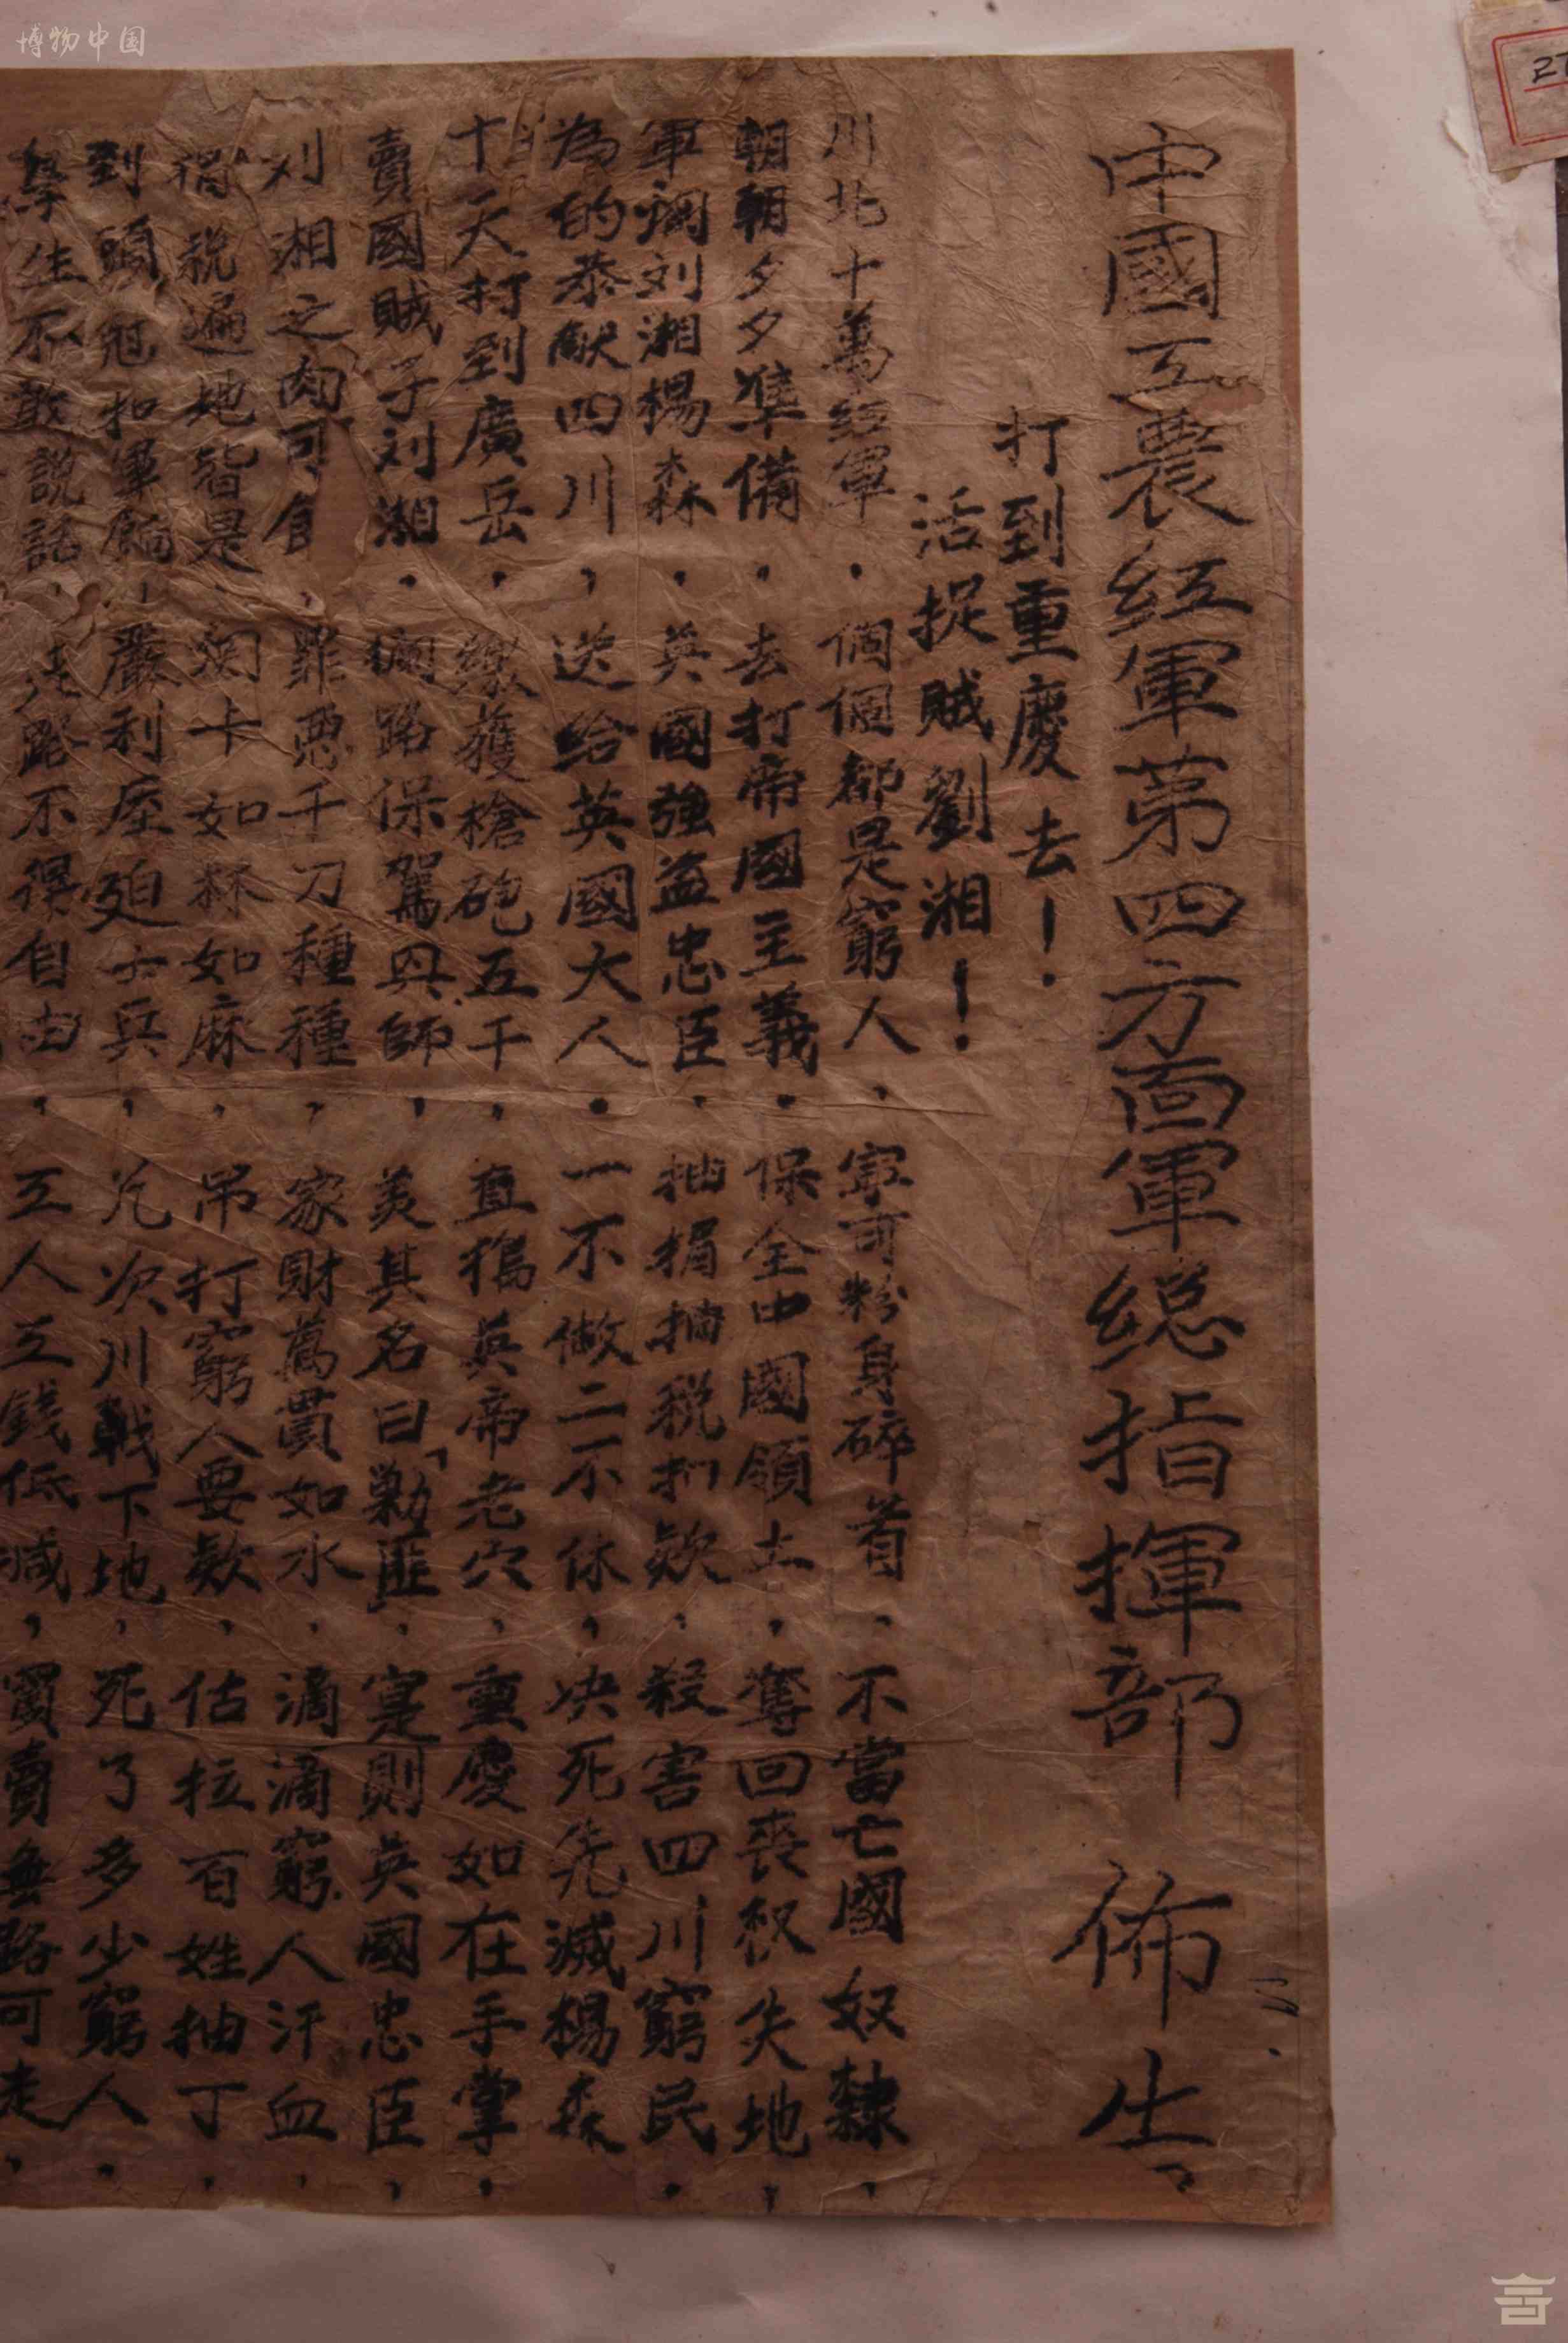 中國工農紅軍第四方面軍總指揮部 佈告
打到重慶去！
活捉賊劉湘！
川北十萬紅軍，個個都是窮人，寧可粉身碎首，不當亡國奴隸，
朝朝夕夕準備，去打帝國主義，保全中國領土，奪回喪权失地，
軍閥刘湘楊森，英國強盗忠臣，抽捐抽税扣欵，殺害四川窮民，
為的恭献四川，送给英國大人，一不做二不休，决死先滅楊森
十天打到廣岳，繳獲槍砲五千，直搗英帝老穴，重慶如在手掌，
賣國賊子刘湘，攔路保駕興師，美其名曰「勦匪，寔則英國忠臣，
刘湘之肉可食，罪恶千刀種種，家財萬貫如水，滴滴窮人汗血，
捐税遍地皆是，関卡如林如麻，吊打窮人要欵，估拉百姓抽丁，
到頭尅扣軍餉，嚴利壓迫士兵，几次川戰下地，死了多少窮人，
學生不敢說話，走路不得自由，工人工錢低減，買賣無路可走，
博物中国
27